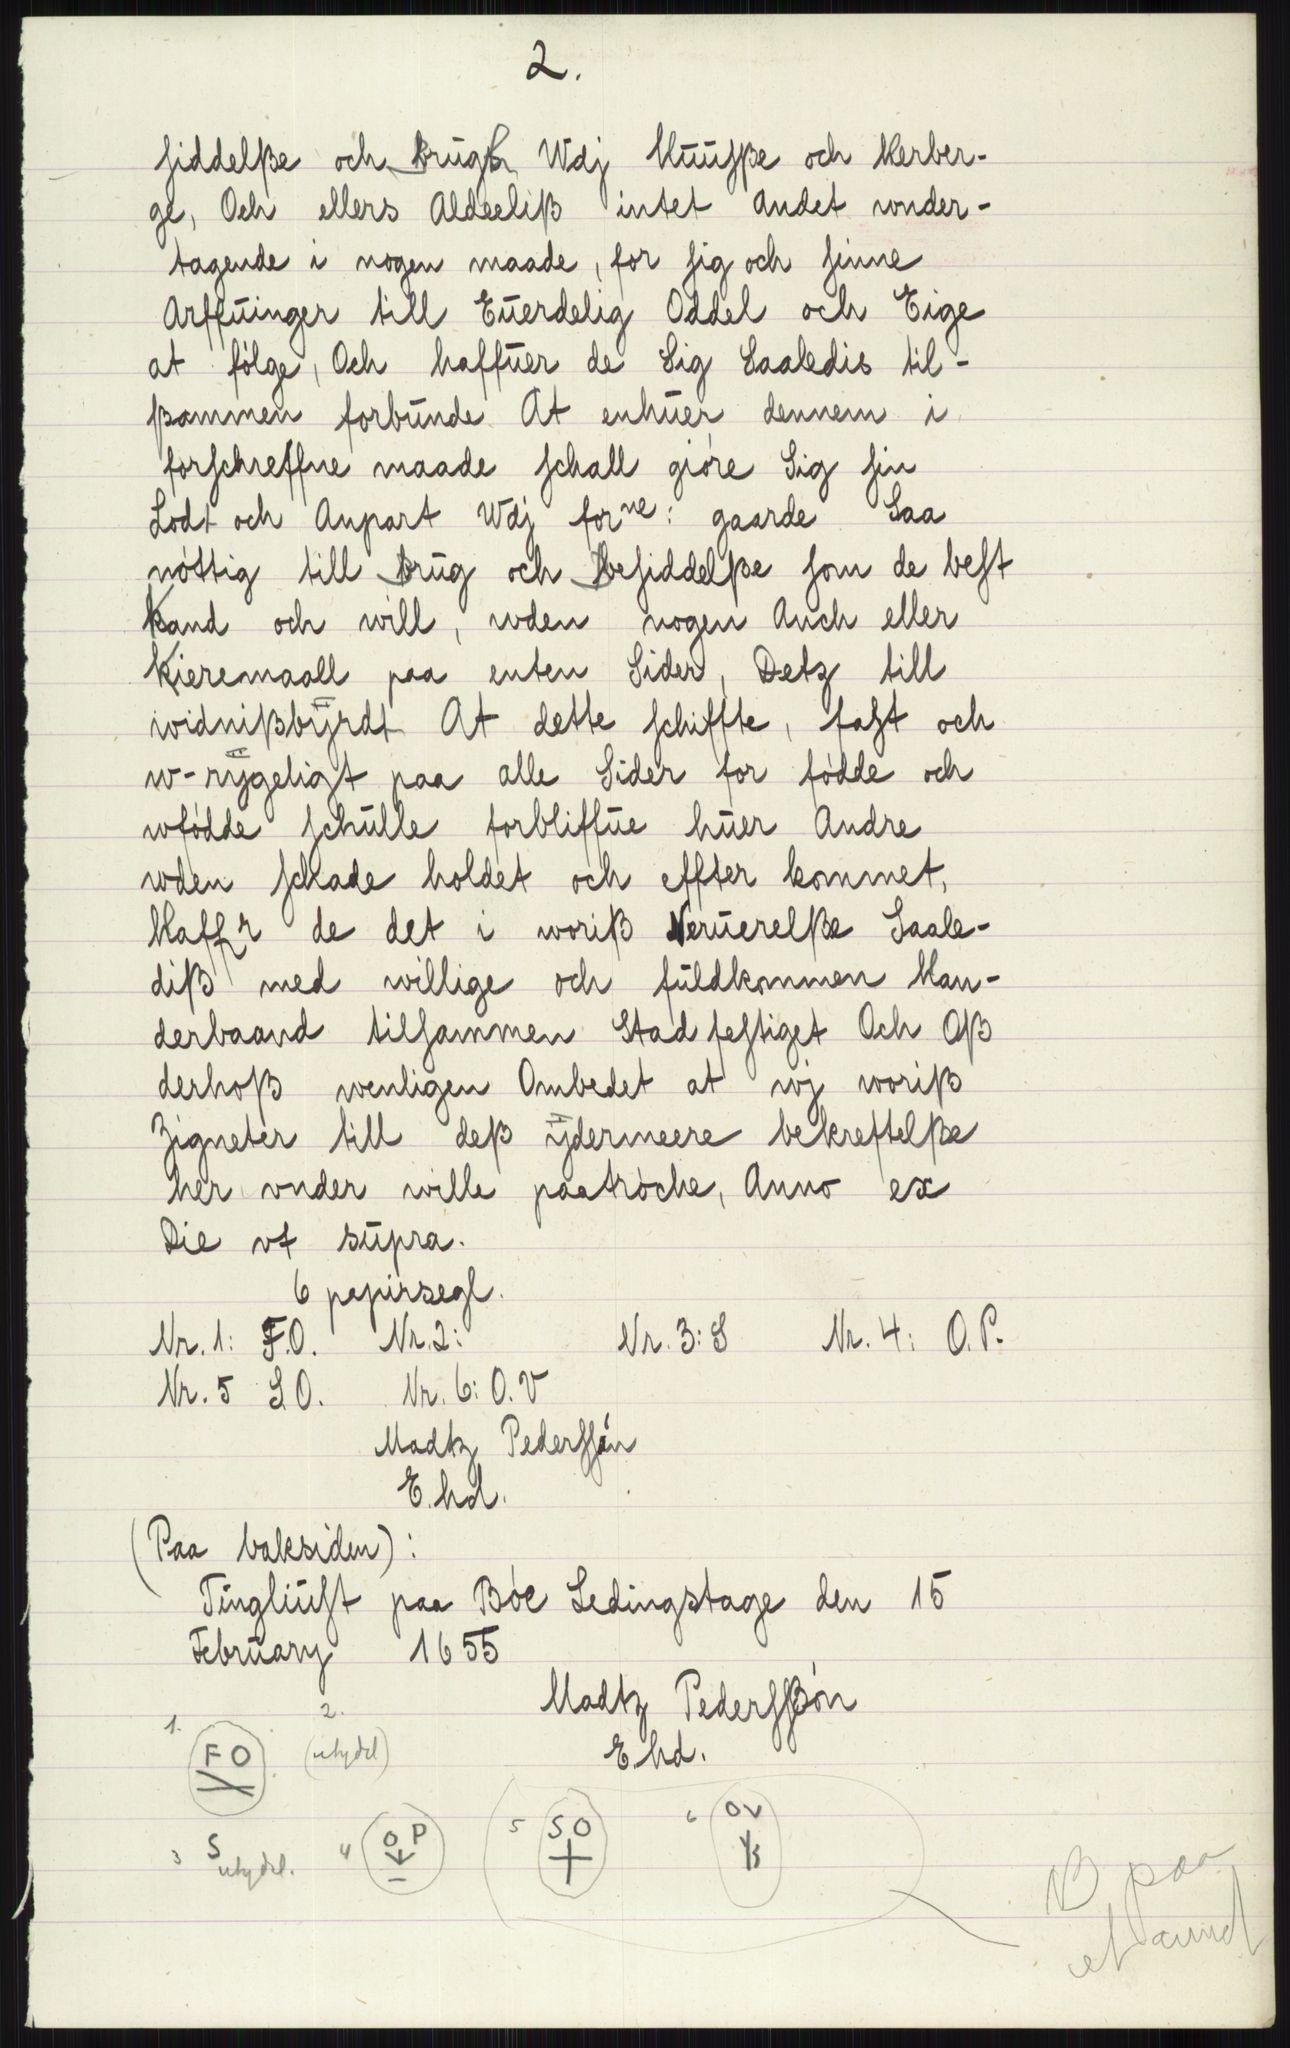 2.
siddelße och brugh Wdj Huusße och Herber-
ge, Och ellers Aldeeliß intet andet wnder-
tagende i nogen maade, for sig och sinne
Arffuinger till Euerdelig Oddel och Eige
at følge, Och haffuer de Sig Saaledis til-
ßammen forbunde At enhuer dennem i
forschreffne maade schall giøre Sig sin
Lodt och Anpart Wdj forne: gaarde Saa
nøttig till brug och besiddelße som de best
kand och will, wden nogen Anch eller
kieremaall paa enten Sider, Detz till
widnißbÿrdt At dette schiffte, fast och
w-rÿgeligt paa alle Sider for fødde och
wfødde schulle forbliffue huer Andre
wden schade holdet och effter kommet,
Haffr de det i woriß Neruerelße Saale-
diß med willige och fuldkommen Han-
derbaand tilsammen Stadfestiget Och Oß
derhoß wenligen Ombedet at wj woriß
Zigneter till deß ÿdermeere bekreftelße
her vnder wille paatrøche, Anno ex
Die vt supra.
6 papirsegl.
Nr. 1: F.O. Nr. 2: Nr. 3: S Nr. 4: O.P.
Nr. 5 S.O. Nr. 6: O.V
Madtz Pedersøn
E.hd.
(Paa baksiden):
Tingliust paa Bøe Ledingstage den 15
February 1655
Madtz Pederssøn
E.hd.
1. FO 2. (utydel)
3 S utydel. 4 O P 5 SO 6 OV
B paa